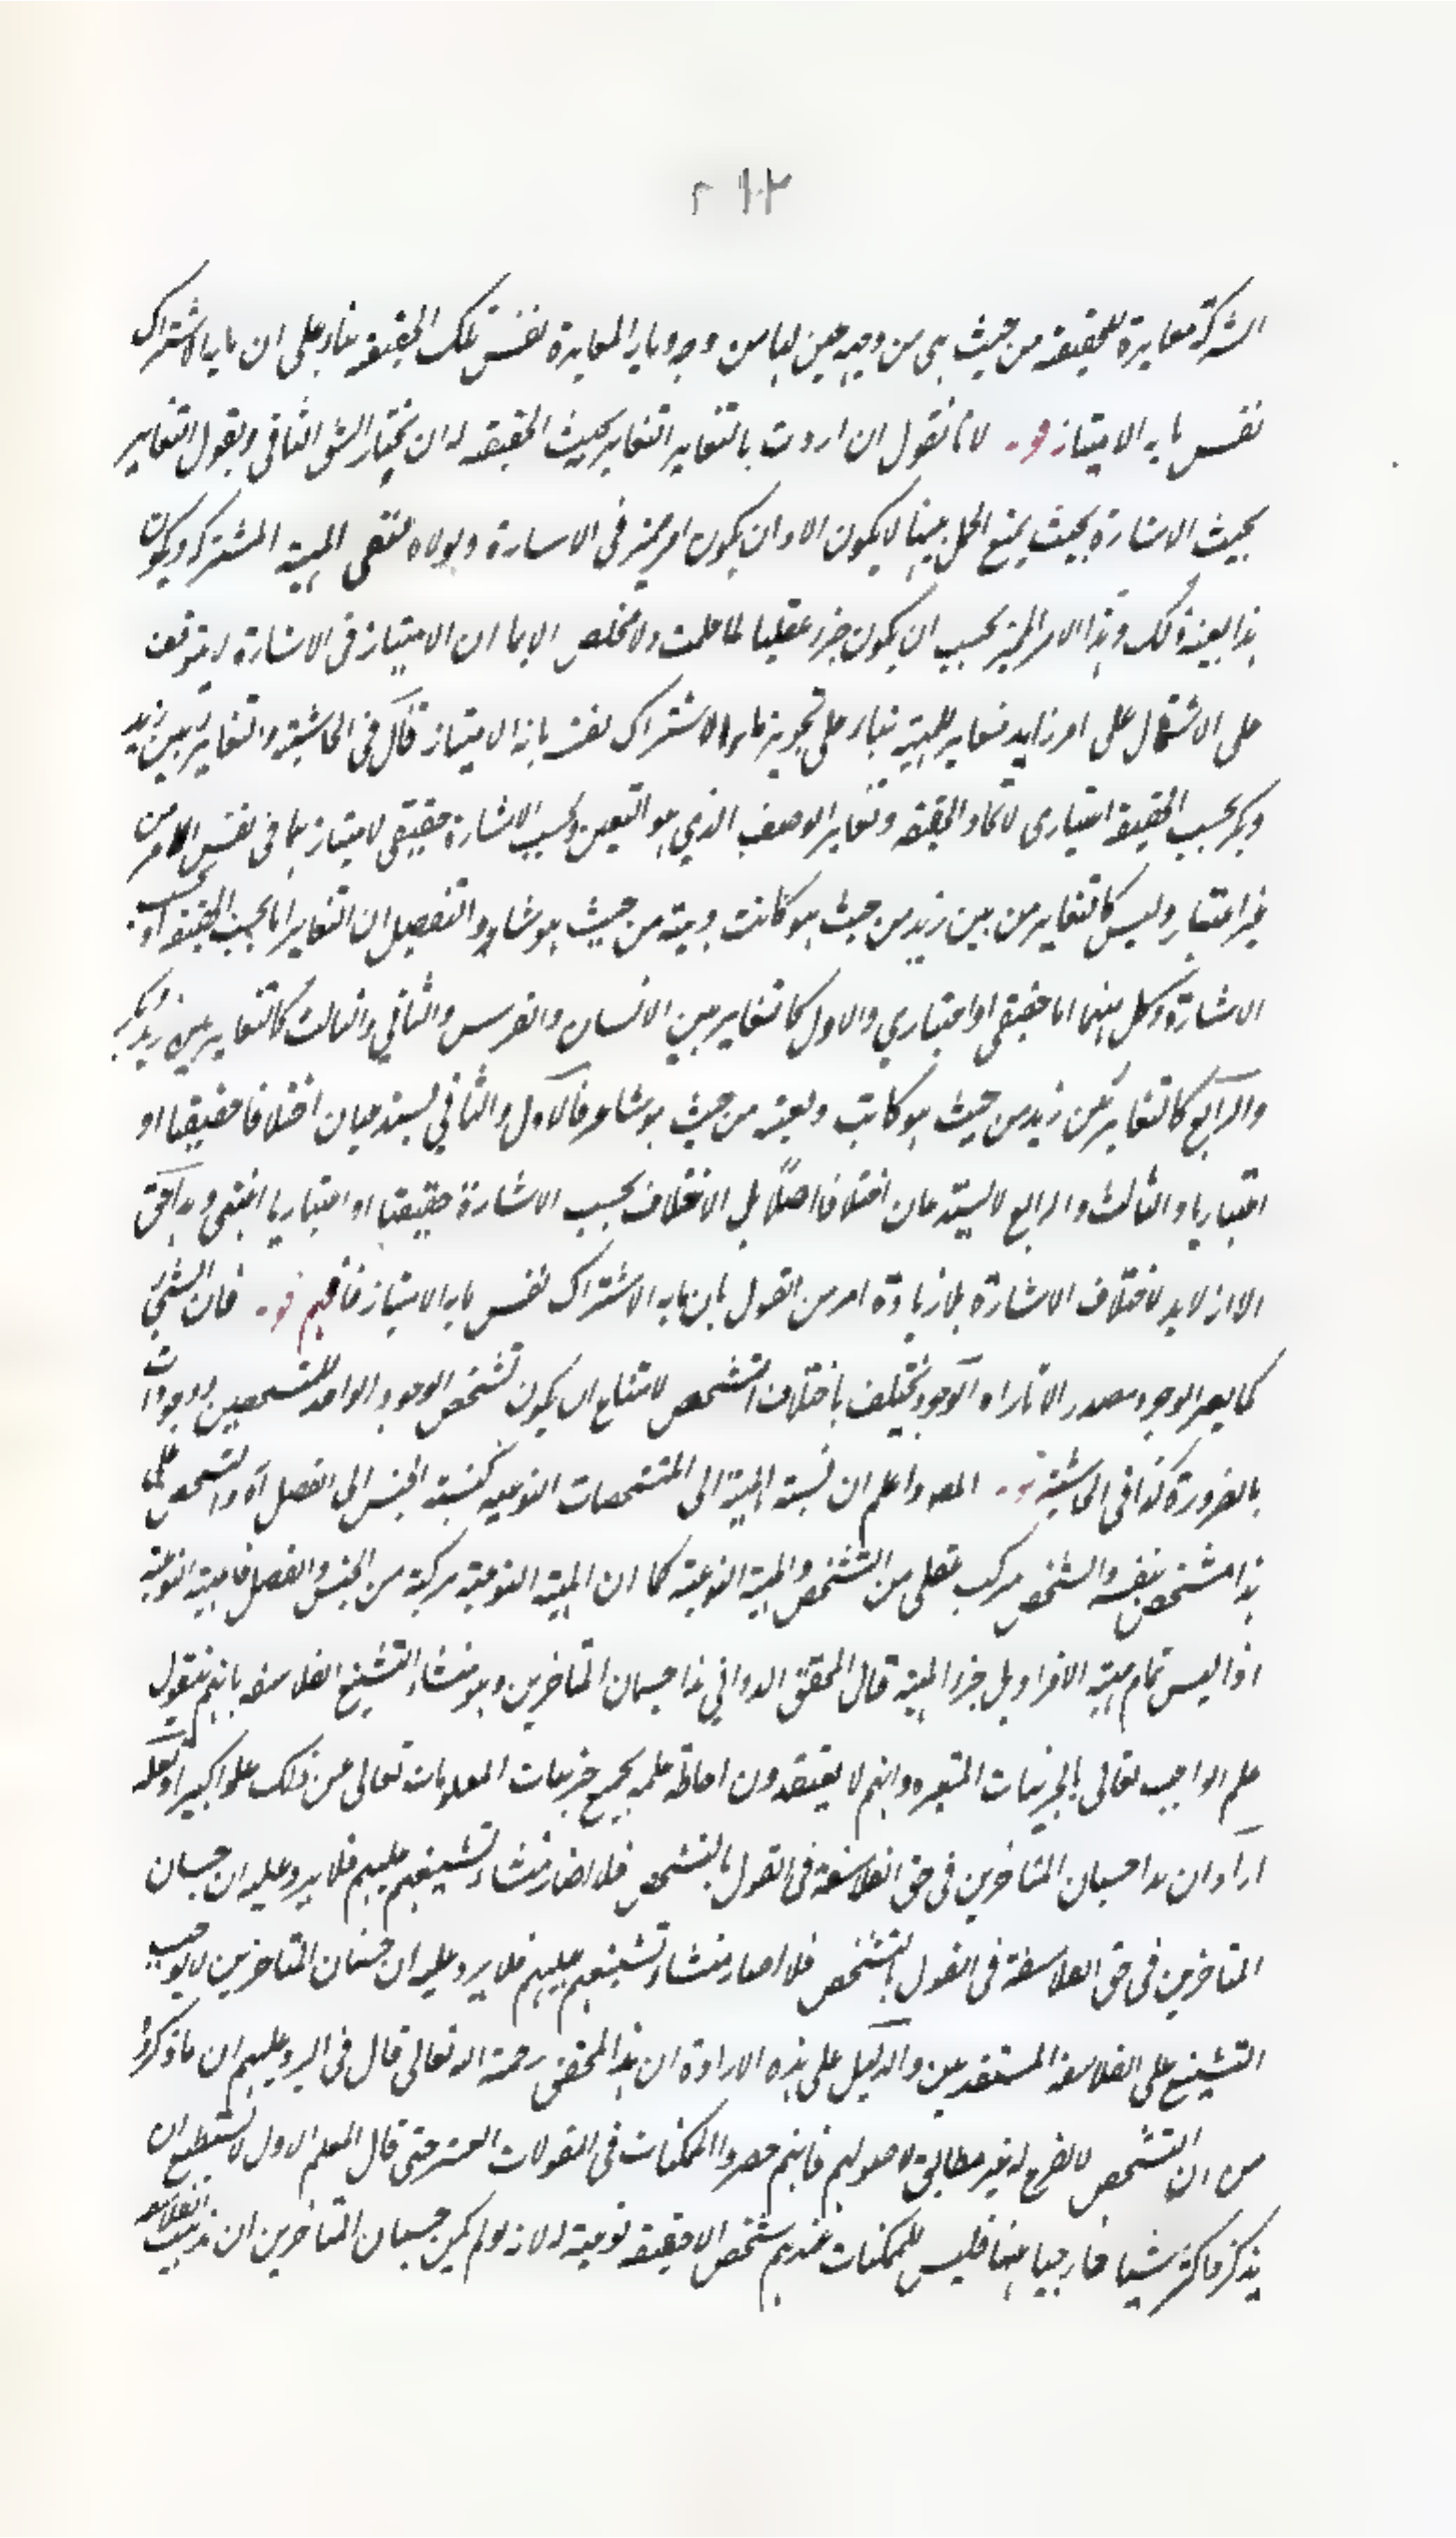 الشركة مغايرة للحقيقة من حيث هي من وجه عين لها من وجه وما به المغايرة نفس تلك الحقيقة بناء على ان ما به الاشتراك
نفس ما به الامتياز قوله لانا نقول ان اردت بالتغاير التغاير بحيث الحقيقة له ان يختار الشق الثاني ويقول التغاير
بحيث الاشارة بحيث يمنع الحمل بينها لا يكون الا وان يكون امر مميز في الاشارة ولولاه لتقى المهية المشتركة ويكون
هذا بعينه ذلك وهذا الامر المميز يجب ان يكون جزء عقليا لما علمت ولا مخلص الا بما ان الامتياز في الاشارة لا يتوقف
على الاشتمال على امر زايد مغاير للمهية بناء على تجويز ما به الاشتراك نفس ما به الامتياز قال في الحاشية والتغاير بين زيد
وبكر بحسب الحقيقة اعتباري لاتحاد الحقيقة وتغاير الوصف الذي هو التعين وبحسب الاشارة حقيقي لامتيازهما في نفس الامر من
غير اعتبار وليس كالتغاير من بين زيد من حيث هو كاتب وبينه من حيث هو شاعر والتفصيل ان التغاير اما بحسب الحقيقة او بحسب
الاشارة وكل منهما اما حقيقي او اعتباري والاول كالتغاير بين الانسان والفرس والثاني والثالث كالتغاير بين زيد وبكر
والرابع كالتغاير بين زيد من حيث هو كاتب وبعينه من حيث هو شاعر فالاول والثاني يستدعيان اختلافا حقيقيا او
اعتباريا والثالث والرابع لا يستدعيان اختلافا اصلا بل الاختلاف بحسب الاشارة حقيقيا او اعتباريا انتهى وبه احق
الا انه لا بد لاختلاف الاشارة بلا زيادة امر من القول بان ما به الاشتراك نفس ما به الامتياز فافهم قوله فان الشئ
كما يصير الوجود مصدر الاثار اه الوجود يختلف باختلاف التشخص لامتناع ان يكون تشخص الوجود الواحد للتشخصين وجودات
بالضرورة كذا في الحاشية قوله المص واعلم ان نسبة المهية الى المتشخصات النوعية كنسبة الجنس الى الفصل اه والتشخص على
هذا متشخص بنفسه والشخص مركب عقلي من التشخص والمهية النوعية كما ان المهية النوعية مركبة من الجنس والفصل فالمهية النوعية
اذا ليس تمام مهية الافراد بل جزء المهية قال المحقق الدواني هذا حسبان المتاخرين وهو منشاء التشنيع الفلاسفه بانهم بقول
علم الواجب تعالى بالجزئيات المتغيره وانهم لا يعتقدون احاطة علمه بجميع جزئيات المعلومات تعالى عن ذلك علوا كبيرا ولعله
اراد ان هذا حسبان المتاخرين في حق الفلاسفة في القول بالتشخص فلا انضار منشاء تشنيعهم عليهم فلا يرد عليه ان حسبان
المتاخرين في حق الفلاسفة في القول بالتشخص فلا انصار منشاء تشنيعهم عليهم فلا يرد عليه ان حسبان المتاخرين لا يوجب
التشنيع على الفلاسفة المستقدمين والدليل على هذه الارادة ان هذا المحقق رحمة اله تعالى قال في الرد عليهم ان ما ذكروه
من ان التشخص لا نفرع له غير مطابق لاصولهم فانهم حصروا الممكنات في المقولات العشر حتى قال المعلم الاول لا نستطيع ان
يذكر ذاكر شيا خارجيا عنها فليس للممكنات عندهم شخص الا حقيقة نوعية ولانه لو لم يكن حسبان المتاخرين ان مذهب الفلاسفه